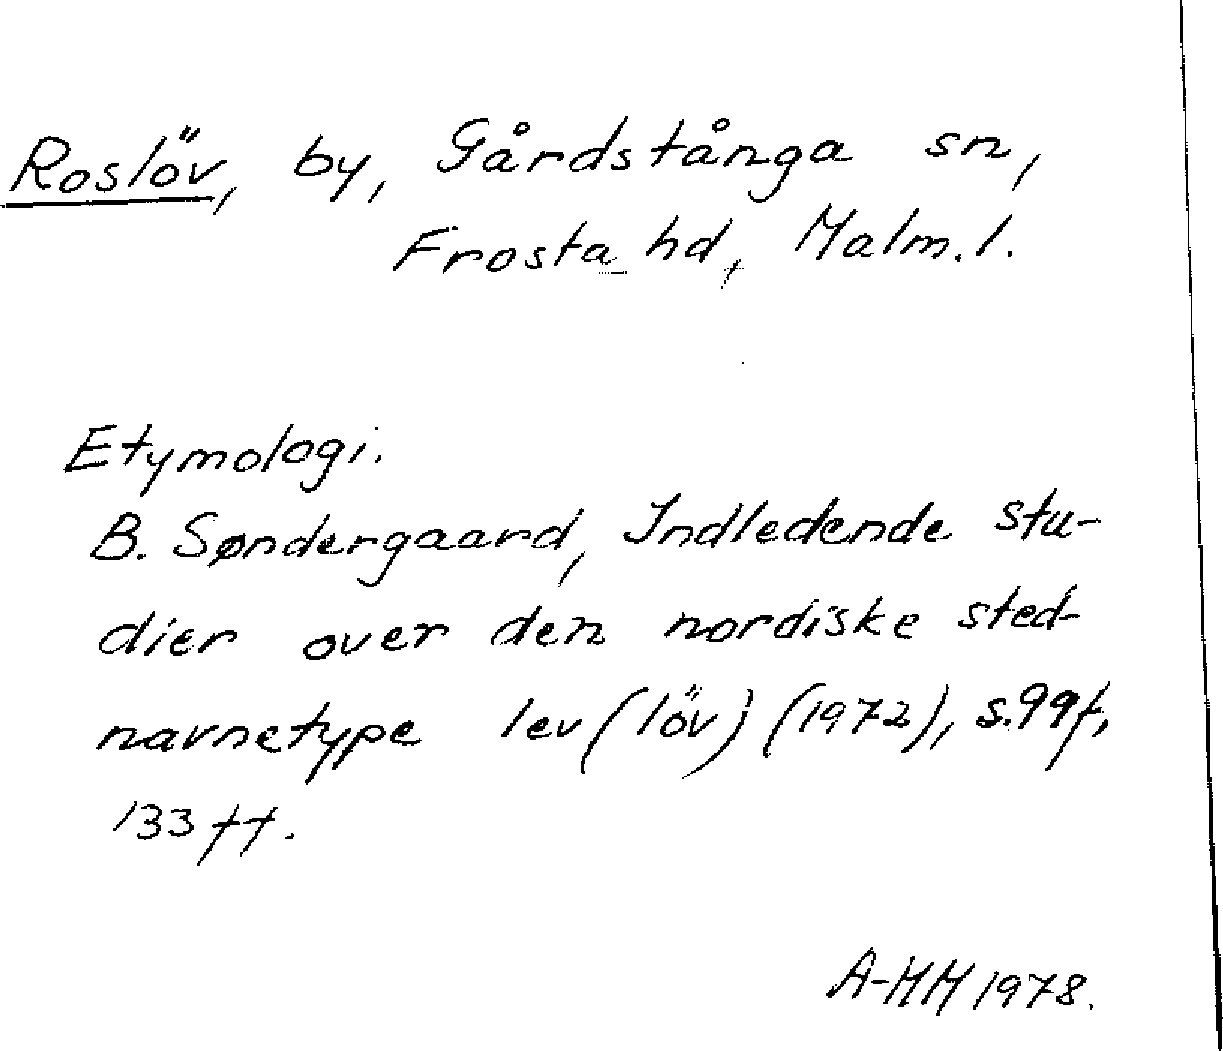 Roslöv, by, Gårdstånga sn,
Frosta hd, Malm. l.
Etymologi.
B. Søndergaard, Indledende stu-
dier over den nordiske sted-
navnetype lev (löv) (1972), s. 99f,
133 ff.
A-MM 1978.